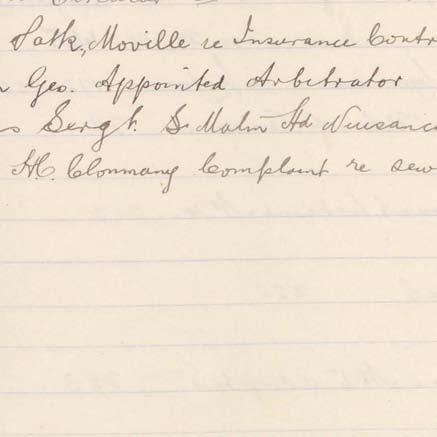 Patk, Moville re Insurance Contr
Geo. Appointed Arbitrator
Sergt. S Malin Hd Nuisanc
H.C. Clonmany Complaint re sew